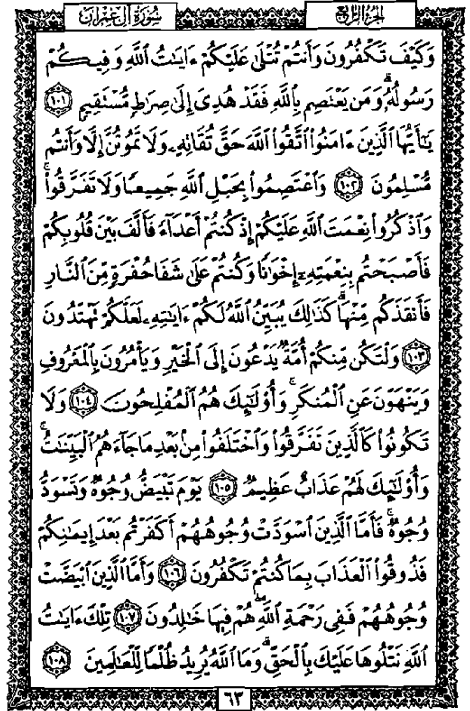 الجزء الرابع
سورة آل عمران
وَكَيْفَ تَكْفُرُونَ وَأَنتُمْ تُتْلَىٰ عَلَيْكُمْ ءَايَٰتُ ٱللَّهِ وَفِيكُمْ
رَسُولُهُۥ ۗ وَمَن يَعْتَصِم بِٱللَّهِ فَقَدْ هُدِىَ إِلَىٰ صِرَٰطٍ مُّسْتَقِيمٍ ١٠١
يَٰٓأَيُّهَا ٱلَّذِينَ ءَامَنُوا۟ ٱتَّقُوا۟ ٱللَّهَ حَقَّ تُقَاتِهِۦ وَلَا تَمُوتُنَّ إِلَّا وَأَنتُم
مُّسْلِمُونَ ١٠٢ وَٱعْتَصِمُوا۟ بِحَبْلِ ٱللَّهِ جَمِيعًا وَلَا تَفَرَّقُوا۟ ۚ
وَٱذْكُرُوا۟ نِعْمَتَ ٱللَّهِ عَلَيْكُمْ إِذْ كُنتُمْ أَعْدَآءً فَأَلَّفَ بَيْنَ قُلُوبِكُمْ
فَأَصْبَحْتُم بِنِعْمَتِهِۦٓ إِخْوَٰنًا وَكُنتُمْ عَلَىٰ شَفَا حُفْرَةٍ مِّنَ ٱلنَّارِ
فَأَنقَذَكُم مِّنْهَا ۗ كَذَٰلِكَ يُبَيِّنُ ٱللَّهُ لَكُمْ ءَايَٰتِهِۦ لَعَلَّكُمْ تَهْتَدُونَ
١٠٣ وَلْتَكُن مِّنكُمْ أُمَّةٌ يَدْعُونَ إِلَى ٱلْخَيْرِ وَيَأْمُرُونَ بِٱلْمَعْرُوفِ
وَيَنْهَوْنَ عَنِ ٱلْمُنكَرِ ۚ وَأُو۟لَٰٓئِكَ هُمُ ٱلْمُفْلِحُونَ ١٠٤ وَلَا
تَكُونُوا۟ كَٱلَّذِينَ تَفَرَّقُوا۟ وَٱخْتَلَفُوا۟ مِنۢ بَعْدِ مَا جَآءَهُمُ ٱلْبَيِّنَٰتُ ۚ
وَأُو۟لَٰٓئِكَ لَهُمْ عَذَابٌ عَظِيمٌ ١٠٥ يَوْمَ تَبْيَضُّ وُجُوهٌ وَتَسْوَدُّ
وُجُوهٌ ۚ فَأَمَّا ٱلَّذِينَ ٱسْوَدَّتْ وُجُوهُهُمْ أَكَفَرْتُم بَعْدَ إِيمَٰنِكُمْ
فَذُوقُوا۟ ٱلْعَذَابَ بِمَا كُنتُمْ تَكْفُرُونَ ١٠٦ وَأَمَّا ٱلَّذِينَ ٱبْيَضَّتْ
وُجُوهُهُمْ فَفِى رَحْمَةِ ٱللَّهِ هُمْ فِيهَا خَٰلِدُونَ ١٠٧ تِلْكَ ءَايَٰتُ
ٱللَّهِ نَتْلُوهَا عَلَيْكَ بِٱلْحَقِّ ۗ وَمَا ٱللَّهُ يُرِيدُ ظُلْمًا لِّلْعَٰلَمِينَ ١٠٨
٦٣